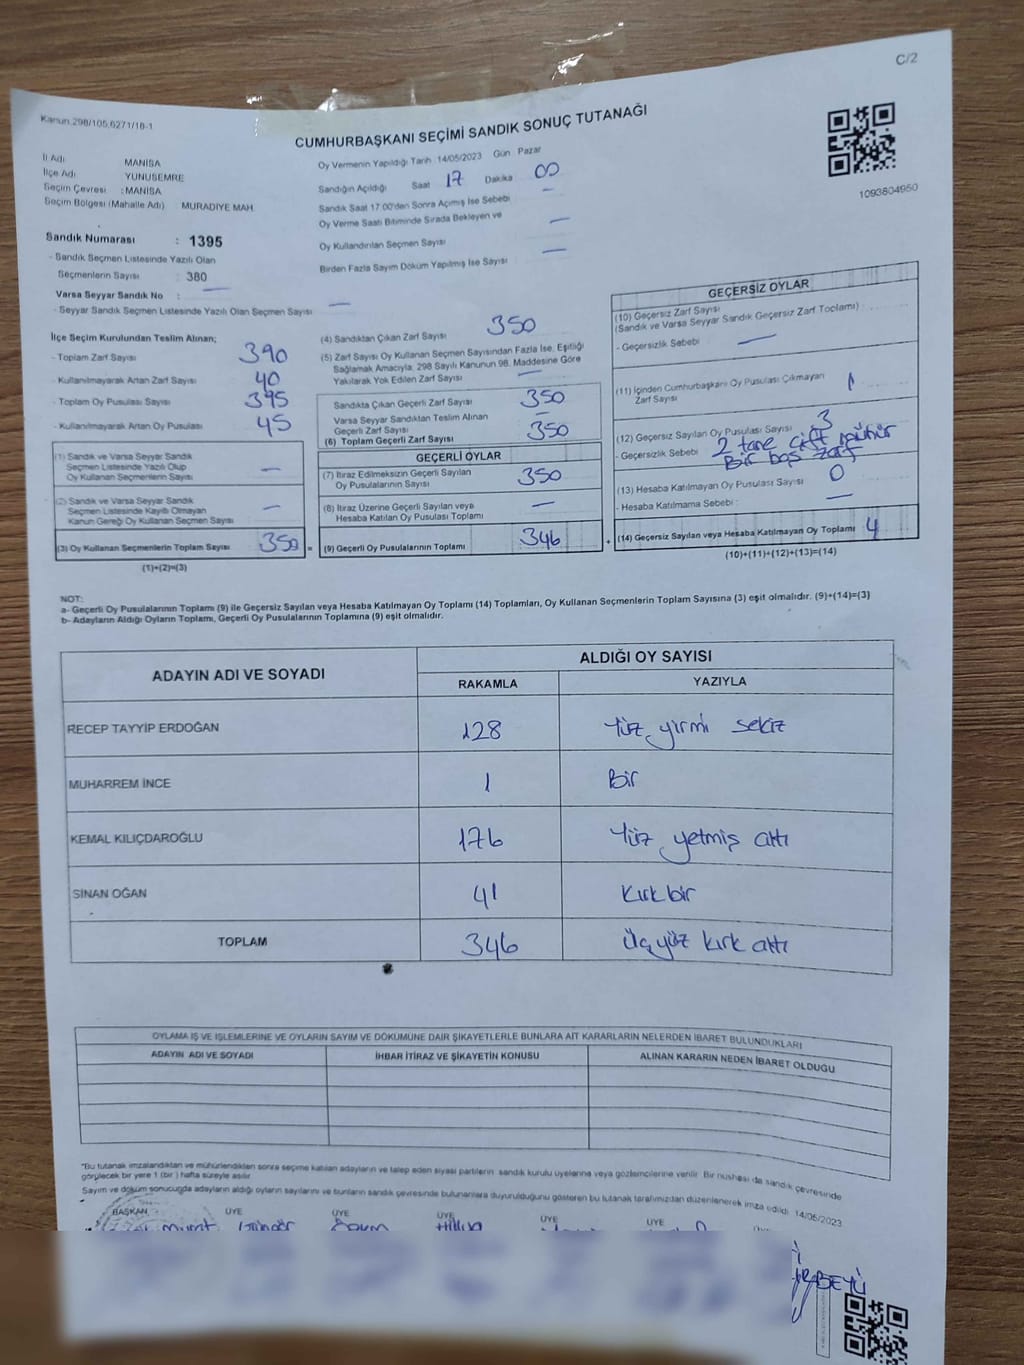 C/2
Kanun 298/105,6271/18-1
CUMHURBAŞKANI SEÇİMİ SANDIK SONUÇ TUTANAĞI
1093804950
İl Adı MANİSA
İlçe Adı YUNUSEMRE
Seçim Çevresi : MANİSA
Seçim Bölgesi (Mahalle Adı) MURADİYE MAH.
Oy Vermenin Yapıldığı Tarih 14/05/2023 Gün Pazar
Sandığın Açıldığı Saat 17 Dakika 00
Sandık Saat 17:00'den Sonra Açılmış İse Sebebi —
Oy Verme Saati Bitiminde Sırada Bekleyen ve
Oy Kullandırılan Seçmen Sayısı —
Birden Fazla Sayım Döküm Yapılmış İse Sayısı —
Sandık Numarası : 1395
- Sandık Seçmen Listesinde Yazılı Olan
Seçmenlerin Sayısı : 380
Varsa Seyyar Sandık No : —
- Seyyar Sandık Seçmen Listesinde Yazılı Olan Seçmen Sayısı —
İlçe Seçim Kurulundan Teslim Alınan;
- Toplam Zarf Sayısı 390
- Kullanılmayarak Artan Zarf Sayısı 40
- Toplam Oy Pusulası Sayısı 395
- Kullanılmayarak Artan Oy Pusulası 45
(1) Sandık ve Varsa Seyyar Sandık
Seçmen Listesinde Yazılı Olup
Oy Kullanan Seçmenlerin Sayısı —
(2) Sandık ve Varsa Seyyar Sandık
Seçmen Listesinde Kayıtlı Olmayan
Kanun Gereği Oy Kullanan Seçmen Sayısı —
(3) Oy Kullanan Seçmenlerin Toplam Sayısı 350 =
(1)+(2)=(3)
(4) Sandıktan Çıkan Zarf Sayısı 350
(5) Zarf Sayısı Oy Kullanan Seçmen Sayısından Fazla İse, Eşitliği
Sağlamak Amacıyla, 298 Sayılı Kanunun 98. Maddesine Göre
Yakılarak Yok Edilen Zarf Sayısı —
Sandıkta Çıkan Geçerli Zarf Sayısı 350
Varsa Seyyar Sandıktan Teslim Alınan
Geçerli Zarf Sayısı —
(6) Toplam Geçerli Zarf Sayısı 350
GEÇERLİ OYLAR
(7) İtiraz Edilmeksizin Geçerli Sayılan
Oy Pusulalarının Sayısı 350
(8) İtiraz Üzerine Geçerli Sayılan veya
Hesaba Katılan Oy Pusulası Toplamı —
(9) Geçerli Oy Pusulalarının Toplamı 346 +
GEÇERSİZ OYLAR
(10) Geçersiz Zarf Sayısı
(Sandık ve Varsa Seyyar Sandık Geçersiz Zarf Toplamı)
- Geçersizlik Sebebi —
(11) İçinden Cumhurbaşkanı Oy Pusulası Çıkmayan
Zarf Sayısı 1
(12) Geçersiz Sayılan Oy Pusulası Sayısı 3
- Geçersizlik Sebebi 2 tane çift mühür
Bir boş zarf
(13) Hesaba Katılmayan Oy Pusulası Sayısı 0
- Hesaba Katılmama Sebebi : —
(14) Geçersiz Sayılan veya Hesaba Katılmayan Oy Toplamı 4
(10)+(11)+(12)+(13)=(14)
NOT:
a- Geçerli Oy Pusulalarının Toplamı (9) ile Geçersiz Sayılan veya Hesaba Katılmayan Oy Toplamı (14) Toplamları, Oy Kullanan Seçmenlerin Toplam Sayısına (3) eşit olmalıdır. (9)+(14)=(3)
b- Adayların Aldığı Oyların Toplamı, Geçerli Oy Pusulalarının Toplamına (9) eşit olmalıdır.
ADAYIN ADI VE SOYADI ALDIĞI OY SAYISI
RAKAMLA YAZIYLA
RECEP TAYYİP ERDOĞAN 128 Yüz yirmi sekiz
MUHARREM İNCE 1 Bir
KEMAL KILIÇDAROĞLU 176 Yüz yetmiş altı
SİNAN OĞAN 41 Kırk bir
TOPLAM 346 Üç yüz kırk altı
OYLAMA İŞ VE İŞLEMLERİNE VE OYLARIN SAYIM VE DÖKÜMÜNE DAİR ŞİKAYETLERLE BUNLARA AİT KARARLARIN NELERDEN İBARET BULUNDUKLARI
ADAYIN ADI VE SOYADI İHBAR İTİRAZ VE ŞİKAYETİN KONUSU ALINAN KARARIN NEDEN İBARET OLDUĞU
"Bu tutanak imzalandıktan ve mühürlendikten sonra seçime katılan adayların ve talep eden siyasi partilerin sandık kurulu üyelerine veya gözlemcilerine verilir. Bir nüshası da sandık çevresinde
görülecek bir yere 1 (bir) hafta süreyle asılır.
Sayım ve döküm sonucunda adayların aldığı oyların sayılarını ve bunların sandık çevresinde bulunanlara duyurulduğunu gösteren bu tutanak tarafımızdan düzenlenerek imza edildi. 14/05/2023
BAŞKAN ÜYE ÜYE ÜYE ÜYE ÜYE